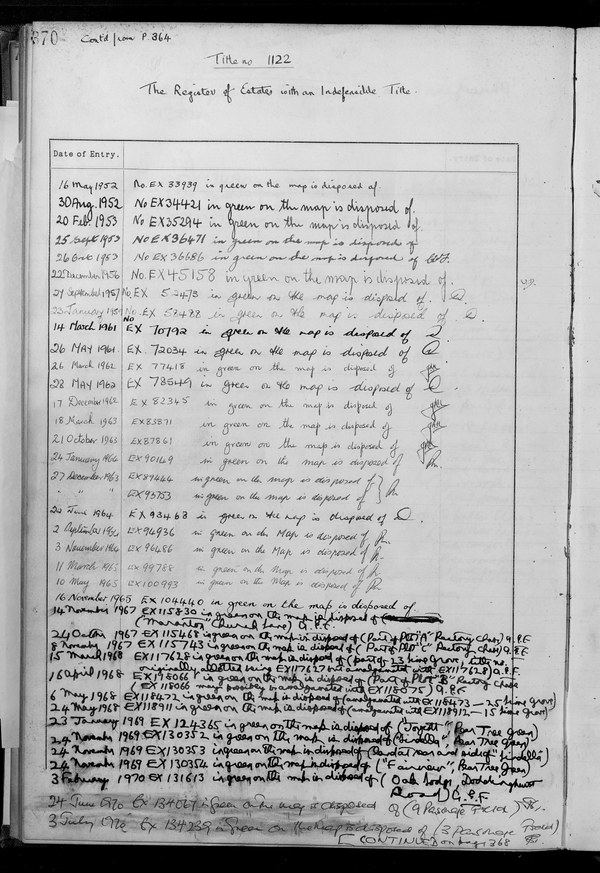 370 Cont'd from P. 364
Title no 1122
The Register of Estates with an Indefeasible Title.
Date of Entry.
16 May 1952 No. EX 33939 in green on the map is disposed of
30 Aug. 1952 No EX34421 in green on the map is disposed of.
20 Feb. 1953 No EX35294 in green on the map is disposed of.
25 Sept 1953 No EX36471 in green on the map is disposed of
26 1953 No EX36686 in green on the map is disposed of
22 December 1956 No. EX45158 in green on the map is disposed of.
27 September 1957 No. EX 52473 in green on the map is disposed of.
23 January 1959 No. EX 58488 in green on the map is disposed of
14 March 1961 No EX 70792 in green on the map is disposed of
26 MAY 1961. EX 72034 in green on the map is disposed of
26 March 1962 EX 77418 in green on the map is disposed of
28 MAY 1962 EX 78549 in green on the map is disposed of
17 December 1962 EX 82345 in green on the map is disposed of
18 March 1963 EX83871 in green on the map is disposed of
21 October 1963 EX87861 in green on the map is disposed of
24 January 1964 EX90149 in green on the map is disposed of
27 December 1963 EX89444 in green on the map is disposed of
" " " EX93753 in green on the map is disposed of
24 June 1964 EX93468 in green on the map is disposed of
2 September 1964 EX94936 in green on the Map is disposed of
3 November 1964 EX96486 in green on the Map is disposed of
11 March 1965 EX99788 in green on the Map is disposed of
10 May 1965 EX100993 in green on the Map is disposed of
16 November 1965 EX104440 in green on the map is disposed of
14 November 1967 EX115830 in green on the map is disposed of
("Mananton" Church Lane) G.P.F.
24 October 1967 EX115468 in green on the map is disposed of (Part of Plot "A" Rectory Chase) G.P.F.
8 November 1967 EX115743 in green on the map is disposed of (Part of Plot "C" Rectory Chase) G.P.F.
15 March 1968 EX117628 in green on the map is disposed of (part of 23 Lime Grove, title no.
originally allotted being EX117627 but amalgamated with EX117628) G.P.F.
16 April 1968 EX118066 in green on the map is disposed of (Part of Plot "B" Rectory Chase
(EX118066 may possibly be amalgamated with EX118075) G.P.F
6 May 1968 EX118472 in green on the map is disposed of (amalgamated with EX118473 — 25 Lime Grove)
24 May 1968 EX118911 in green on the map is disposed of (amalgamated with EX118912 — 15 Lime Grove)
23 January 1969 EX124365 in green on the map is disposed of ("Joyott" Pear Tree Green)
24 November 1969 EX130352 in green on the map is disposed of ("Lindella", Pear Tree Green)
24 November 1969 EX130353 in green on the map is disposed of (land at rear and side of "Lindella")
24 November 1969 EX130354 in green on the map is disposed of ("Fairview", Pear Tree Green)
3 February 1970 EX131613 in green on the map is disposed of (Oak Lodge, Doddinghurst
Road) G.P.F
24 June 1970 EX 134027 in green on the map is disposed of (9 Parsonage Field)
3 July 1970 EX 134239 in green on the map is disposed of (3 Parsonage Field)
[CONTINUED on page 368